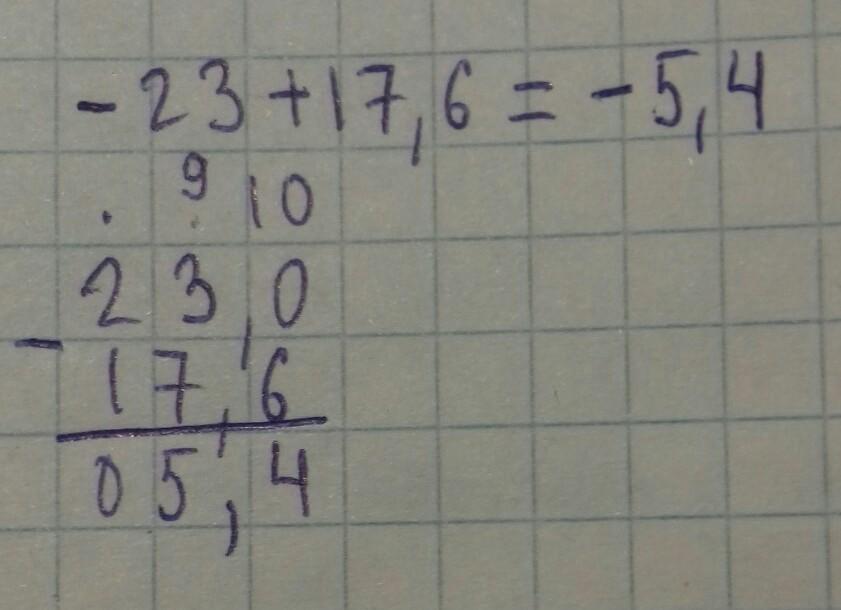 -23+17,6=-5,4
. 9 10
23,0
-
17,6
05,4